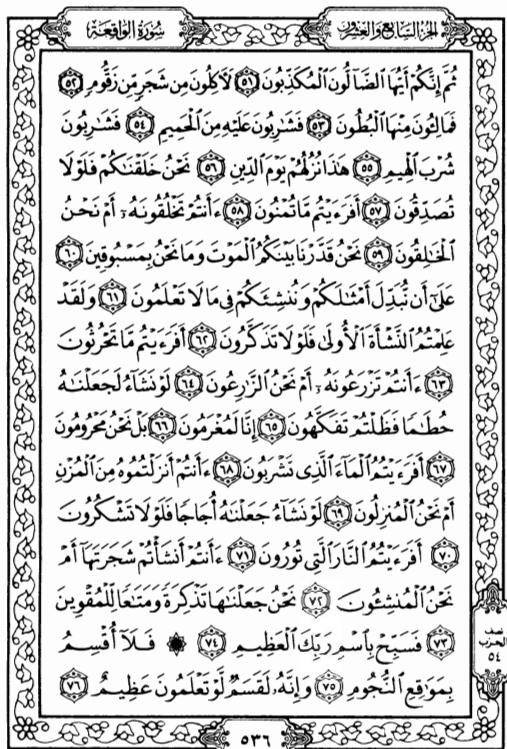 الجزء السابع والعشرون
سورة الواقعة
ثُمَّ إِنَّكُمْ أَيُّهَا ٱلضَّآلُّونَ ٱلْمُكَذِّبُونَ ٥١ لَأٓكِلُونَ مِن شَجَرٍ مِّن زَقُّومٍ ٥٢
فَمَالِـُٔونَ مِنْهَا ٱلْبُطُونَ ٥٣ فَشَٰرِبُونَ عَلَيْهِ مِنَ ٱلْحَمِيمِ ٥٤ فَشَٰرِبُونَ
شُرْبَ ٱلْهِيمِ ٥٥ هَٰذَا نُزُلُهُمْ يَوْمَ ٱلدِّينِ ٥٦ نَحْنُ خَلَقْنَٰكُمْ فَلَوْلَا
تُصَدِّقُونَ ٥٧ أَفَرَءَيْتُم مَّا تُمْنُونَ ٥٨ ءَأَنتُمْ تَخْلُقُونَهُۥٓ أَمْ نَحْنُ
ٱلْخَٰلِقُونَ ٥٩ نَحْنُ قَدَّرْنَا بَيْنَكُمُ ٱلْمَوْتَ وَمَا نَحْنُ بِمَسْبُوقِينَ ٦٠
عَلَىٰٓ أَن نُّبَدِّلَ أَمْثَٰلَكُمْ وَنُنشِئَكُمْ فِى مَا لَا تَعْلَمُونَ ٦١ وَلَقَدْ
عَلِمْتُمُ ٱلنَّشْأَةَ ٱلْأُولَىٰ فَلَوْلَا تَذَكَّرُونَ ٦٢ أَفَرَءَيْتُم مَّا تَحْرُثُونَ
٦٣ ءَأَنتُمْ تَزْرَعُونَهُۥٓ أَمْ نَحْنُ ٱلزَّٰرِعُونَ ٦٤ لَوْ نَشَآءُ لَجَعَلْنَٰهُ
حُطَٰمًا فَظَلْتُمْ تَفَكَّهُونَ ٦٥ إِنَّا لَمُغْرَمُونَ ٦٦ بَلْ نَحْنُ مَحْرُومُونَ
٦٧ أَفَرَءَيْتُمُ ٱلْمَآءَ ٱلَّذِى تَشْرَبُونَ ٦٨ ءَأَنتُمْ أَنزَلْتُمُوهُ مِنَ ٱلْمُزْنِ
أَمْ نَحْنُ ٱلْمُنزِلُونَ ٦٩ لَوْ نَشَآءُ جَعَلْنَٰهُ أُجَاجًا فَلَوْلَا تَشْكُرُونَ
٧٠ أَفَرَءَيْتُمُ ٱلنَّارَ ٱلَّتِى تُورُونَ ٧١ ءَأَنتُمْ أَنشَأْتُمْ شَجَرَتَهَآ أَمْ
نَحْنُ ٱلْمُنشِـُٔونَ ٧٢ نَحْنُ جَعَلْنَٰهَا تَذْكِرَةً وَمَتَٰعًا لِّلْمُقْوِينَ
٧٣ فَسَبِّحْ بِٱسْمِ رَبِّكَ ٱلْعَظِيمِ ٧٤ ۞ فَلَآ أُقْسِمُ
بِمَوَٰقِعِ ٱلنُّجُومِ ٧٥ وَإِنَّهُۥ لَقَسَمٌ لَّوْ تَعْلَمُونَ عَظِيمٌ ٧٦
نصف
الحزب
٥٤
٥٣٦